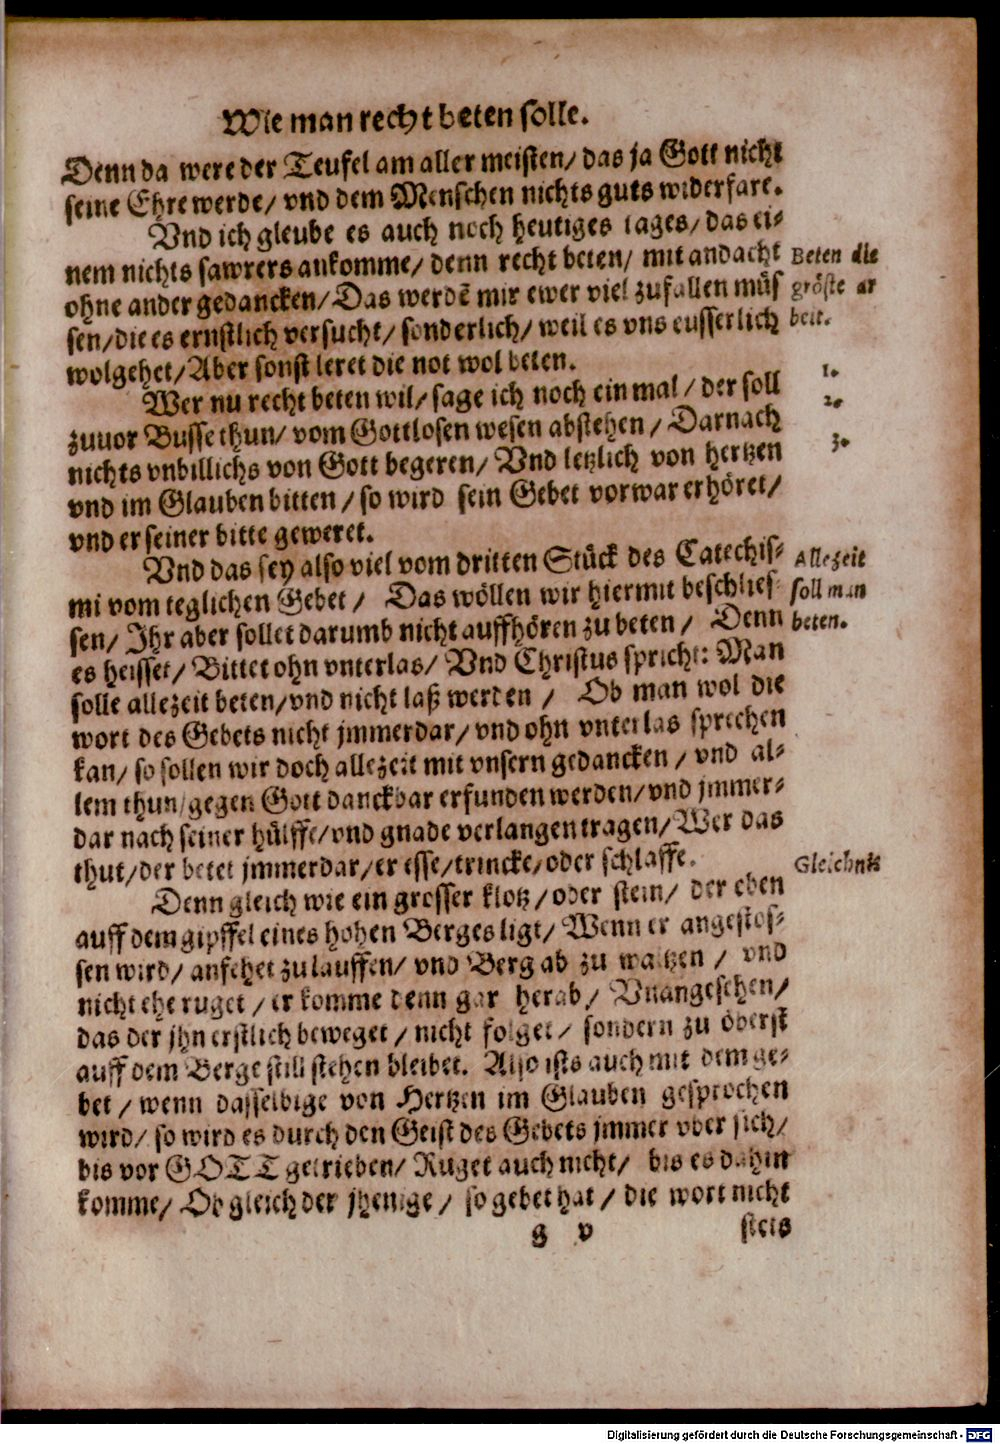 Wie man recht beten solle.
Denn da were der Teufel am aller meisten/ das ja Gott nicht
seine Ehre werde/ vnd dem Menschen nichts guts widerfare.
Vnd ich gleube es auch noch heutiges tages/ das ei-
nem nichts sawrers ankomme/ denn recht beten/ mit andacht
Beten die
ohne ander gedancken/ Das werdē mir ewer viel zufallen müs
gröste ar
sen/ die es ernstlich versucht/ sonderlich/ weil es vns eusserlich
beit.
wolgehet/ Aber sonst leret die not wol beten.
Wer nu recht beten wil/ sage ich noch ein mal/ der soll
1.
zuuor Busse thun/ vom Gottlosen wesen abstehen/ Darnach
2.
nichts vnbillichs von Gott begeren/ Vnd letzlich von hertzen
3.
vnd im Glauben bitten/ so wird sein Gebet vorwar erhöret/
vnd er seiner bitte geweret.
Vnd das sey also viel vom dritten Stück des Catechis-
Allezeit
mi vom teglichen Gebet/ Das wöllen wir hiermit beschlies
soll man
sen/ Ihr aber sollet darumb nicht auffhören zu beten/ Denn
beten.
es heisset/ Bittet ohn vnterlas/ Vnd Christus spricht: Man
solle allezeit beten/ vnd nicht laß werden/ Ob man wol die
wort des Gebets nicht jmmerdar/ vnd ohn vnterlas sprechen
kan/ so sollen wir doch allezeit mit vnsern gedancken/ vnd al-
lem thun/ gegen Gott danckbar erfunden werden/ vnd jmmer-
dar nach seiner hülffe/ vnd gnade verlangen tragen/ Wer das
thut/ der betet jmmerdar/ er esse/ trincke/ oder schlaffe.
Gleichnis
Denn gleich wie ein grosser klotz/ oder stein/ der eben
auff dem gipffel eines hohen Berges ligt/ Wenn er angestos-
sen wird/ anfehet zu lauffen/ vnd Berg ab zu waltzen/ vnd
nicht ehe ruget/ er komme denn gar herab/ Vnangesehen/
das der jhn erstlich beweget/ nicht folget/ sondern zu öberst
auff dem Berge still stehen bleibet. Also ists auch mit dem ge-
bet/ wenn dasselbige von Hertzen im Glauben gesprochen
wird/ so wird es durch den Geist des Gebets jmmer vber sich/
bis vor GOTT getrieben/ Ruget auch nicht/ bis es dahin
komme/ Ob gleich der jhenige/ so gebet hat/ die wort nicht
g v
stets
Digitalisierung gefördert durch die Deutsche Forschungsgemeinschaft - DFG